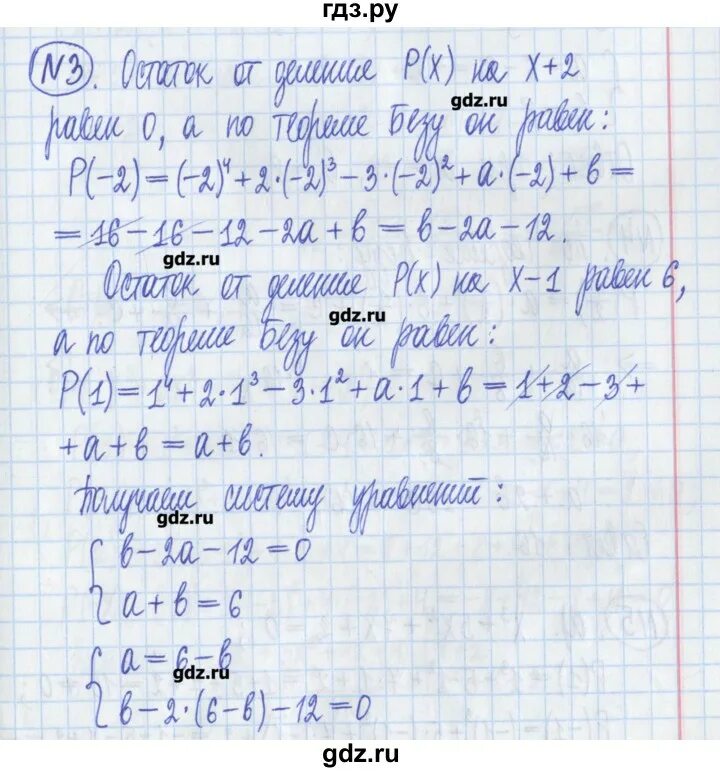 гдз.ру
№3. Остаток от деление P(x) на x+2
gdz.ru
равен 0, а по теореме Безу он равен:
P(-2) = (-2)⁴ + 2·(-2)³ - 3·(-2)² + a·(-2) + b =
= 16 - 16 - 12 - 2a + b = b - 2a - 12.
gdz.ru
Остаток от деление P(x) на x-1 равен 6,
gdz.ru
а по теореме Безу он равен:
P(1) = 1⁴ + 2·1³ - 3·1² + a·1 + b = 1 + 2 - 3 +
+ a + b = a + b.
Получаем систему уравнений:
gdz.ru
{ b - 2a - 12 = 0
a + b = 6
{ a = 6 - b
gdz.ru
b - 2·(6 - b) - 12 = 0
gdz.ru